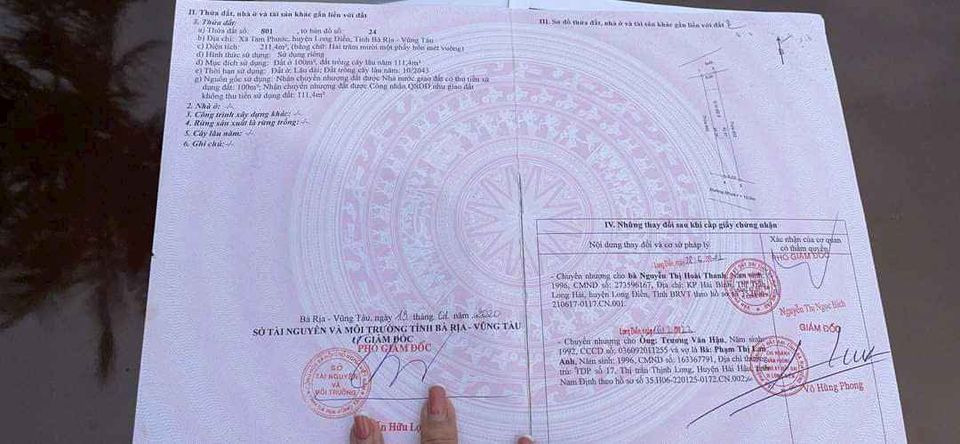 II. Thửa đất, nhà ở và tài sản khác gắn liền với đất
1. Thửa đất:
a) Thửa đất số: 801 , tờ bản đồ số: 24
b) Địa chỉ: Xã Tam Phước, huyện Long Điền, Tỉnh Bà Rịa - Vũng Tàu
c) Diện tích: 211,4m², (bằng chữ: Hai trăm mười một phẩy bốn mét vuông)
d) Hình thức sử dụng: Sử dụng riêng
đ) Mục đích sử dụng: Đất ở 100m², đất trồng cây lâu năm 111,4m²
e) Thời hạn sử dụng: Đất ở: Lâu dài; Đất trồng cây lâu năm: 10/2043
g) Nguồn gốc sử dụng: Nhận chuyển nhượng đất được Nhà nước giao đất có thu tiền sử
dụng đất: 100m²; Nhận chuyển nhượng đất được Công nhận QSDĐ như giao đất
không thu tiền sử dụng đất: 111,4m²
2. Nhà ở: -/-
3. Công trình xây dựng khác: -/-
4. Rừng sản xuất là rừng trồng: -/-
5. Cây lâu năm: -/-
6. Ghi chú: -/-
Bà Rịa - Vũng Tàu, ngày 19 tháng năm 2020
SỞ TÀI NGUYÊN VÀ MÔI TRƯỜNG TỈNH BÀ RỊA - VŨNG TÀU
GIÁM ĐỐC
PHÓ GIÁM ĐỐC
SỞ
TÀI NGUYÊN
VÀ
MÔI TRƯỜNG
Hữu
III. Sơ đồ thửa đất, nhà ở và tài sản khác gắn liền với đất
IV. Những thay đổi sau khi cấp giấy chứng nhận
Nội dung thay đổi và cơ sở pháp lý
Xác nhận của cơ quan
có thẩm quyền
PHÓ GIÁM ĐỐC
Long Điền, ngày
- Chuyển nhượng cho bà Nguyễn Thị Hoài Thanh, Năm sinh:
1996, CMND số: 273596167, Địa chỉ: KP Hải Bình, Thị Trấn
Long Hải, huyện Long Điền, Tỉnh BRVT theo hồ sơ số
210617-0117.CN.001.
Nguyễn Thị Ngọc Bích
Long Điền, ngày
GIÁM ĐỐC
- Chuyển nhượng cho Ông: Trương Văn Hậu, Năm sinh:
1992, CCCD số: 036092011255 và vợ là Bà: Phạm Thị Lan
Anh, Năm sinh: 1996, CMND số: 163367791, Địa chỉ thường
trú: TDP số 17, Thị trấn Thịnh Long, Huyện Hải Hậu, tỉnh
Nam Định theo hồ sơ số 35.H06-220125-0172.CN.002
Võ Hùng Phong